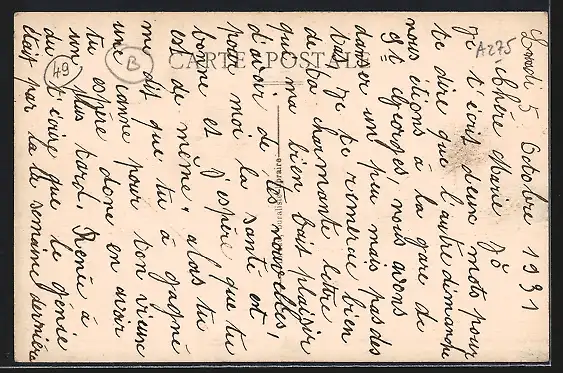 Lundi 5 Octobre 1931
Chère Marie Jô
Je t'écris deux mots pour
te dire que l'autre dimanche
nous étions à la gare de
St Georges, nous avons
danser un peu mais pas des
Je te remercie bien
de ta charmante lettre
qui ma bien fait plaisir
d'avoir de tes nouvelles,
pour moi la santé est
bonne et J'espère que tu
est de même. alors tu
me dit que tu a gagné
une canne pour ton vieux
tu espère donc en avoir
un plus tard. Renée à
du t'écrire que le génie
était par la la semaine dernière
CARTE POSTALE
A275
B
49